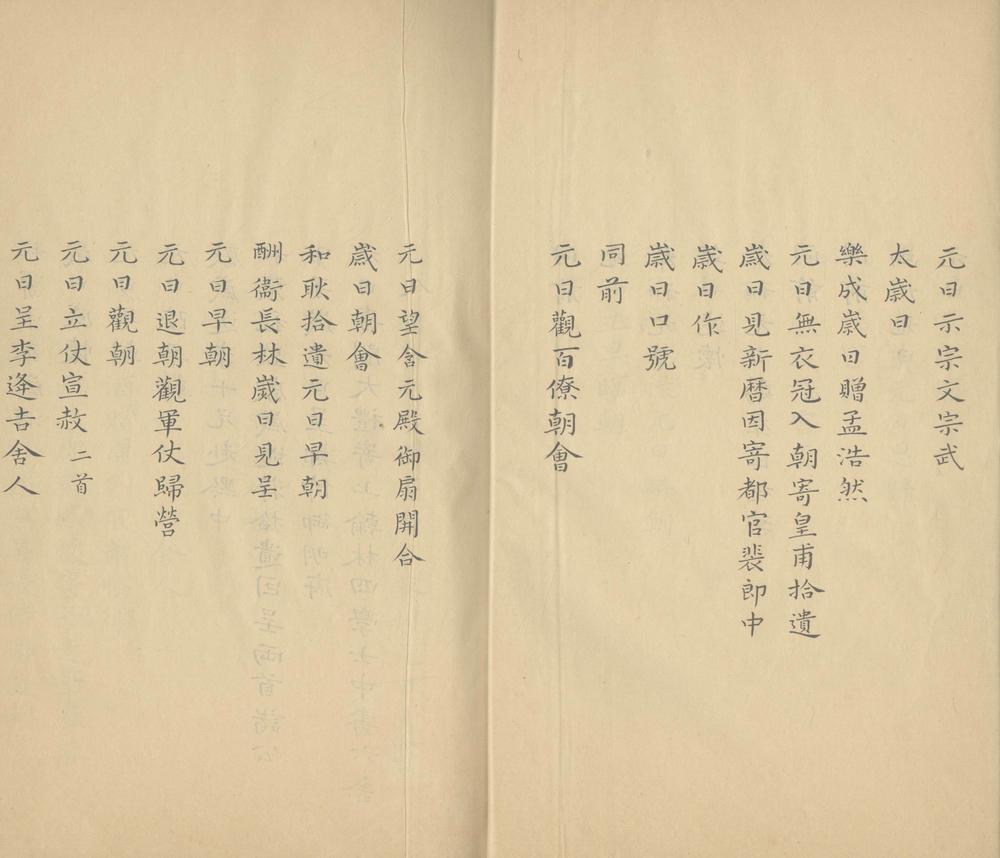 元日示宗文宗武
太歲日
樂成歲日贈孟浩然
元日無衣冠入朝寄皇甫拾遺
歲日見新曆因寄都官裴郎中
歲日作
歲日口號
同前
元日觀百僚朝會
元日望含元殿御扇開合
歲日朝會
和耿拾遺元日早朝
酬衞長林歲日見呈
元日早朝
元日退朝觀軍仗歸營
元日觀朝
元日立仗宣赦 二首
元日呈李逄吉舍人